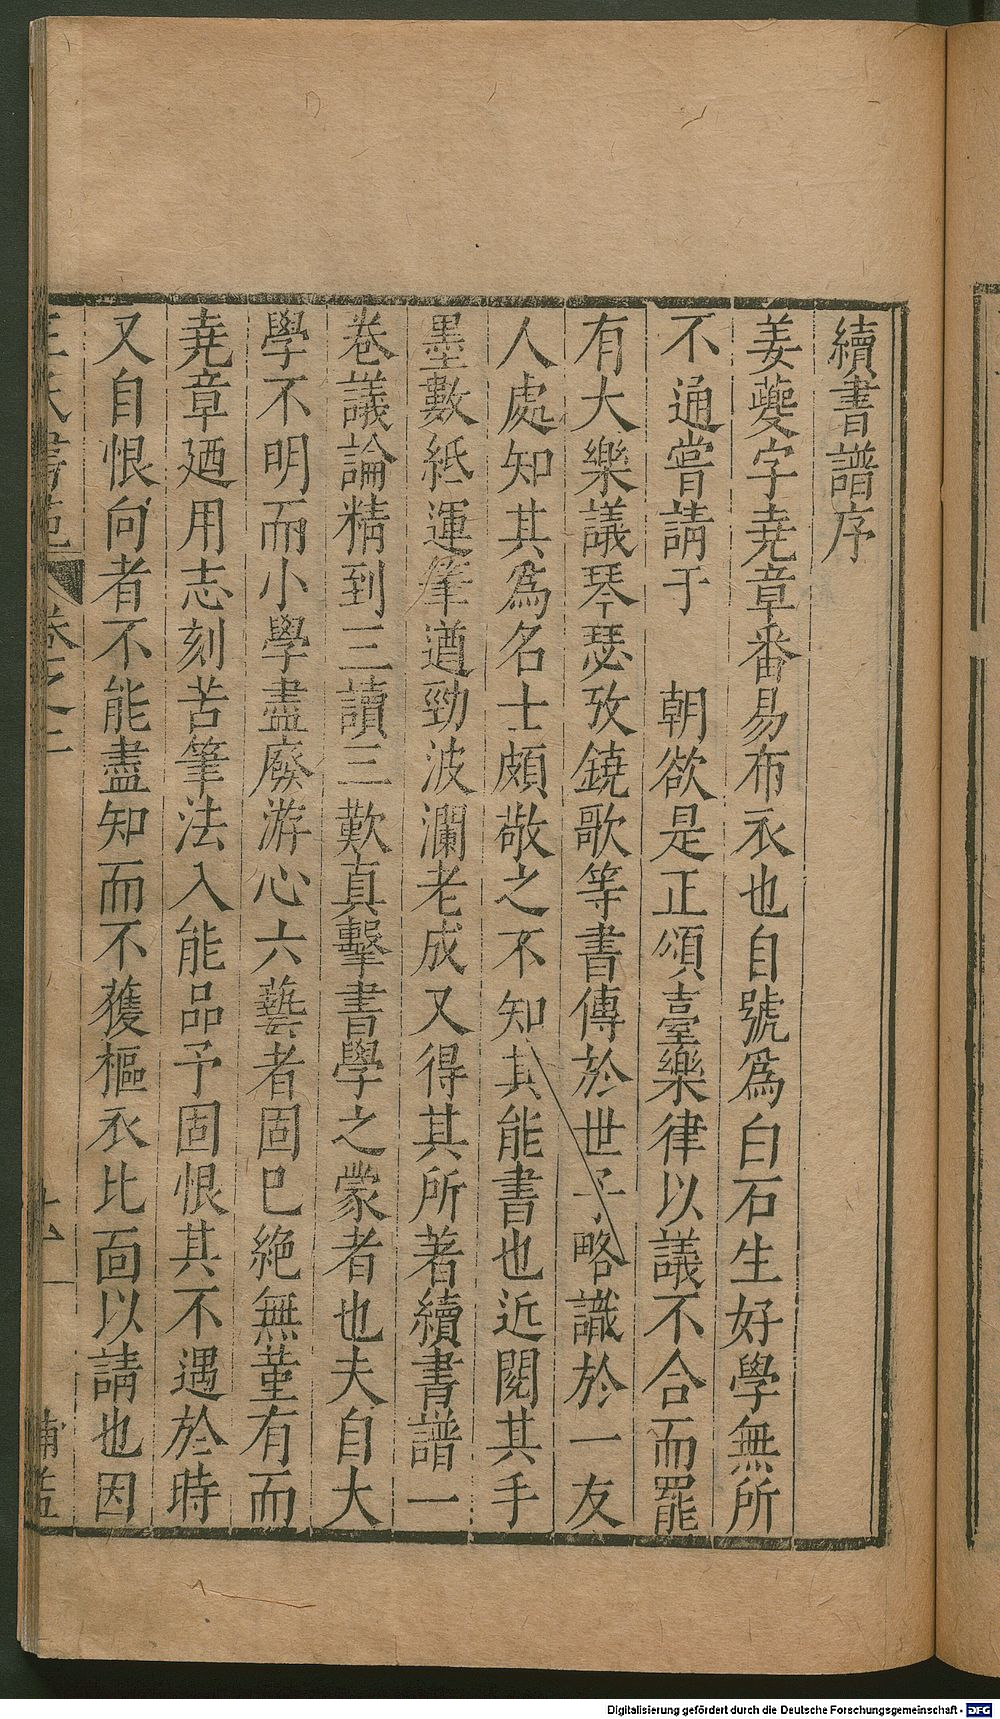 續書譜序
姜夔字堯章番易布衣也自號爲白石生好學無所
不通嘗請于　朝欲是正頌臺樂律以議不合而罷
有大樂議琴瑟攷鐃歌等書傳於世予略識於一友
人處知其爲名士頗敬之不知其能書也近閱其手
墨數紙運筆遒勁波瀾老成又得其所著續書譜一
卷議論精到三讀三歎真擊書學之蒙者也夫自大
學不明而小學盡廢游心六藝者固巳絶無董有而
堯章廼用志刻苦筆法入能品予固恨其不遇於時
又自恨向者不能盡知而不獲樞衣北面以請也因
王氏書苑　卷之二
Digitalisierung gefördert durch die Deutsche Forschungsgemeinschaft - DFG